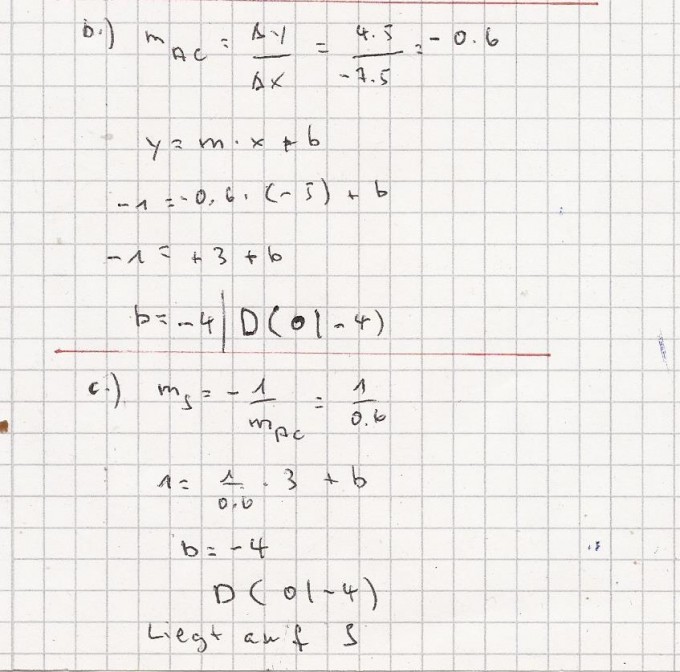 b.) m AC = Δy / Δx = 4.5 / -7.5 = - 0.6
y = m · x + b
-1 = -0,6 · (-5) + b
-1 = +3 + b
b = -4 | D(0|-4)
c.) m s = - 1 / m AC = 1 / 0.6
1 = 1 / 0.6 · 3 + b
b = -4
D(0|-4)
Liegt auf S